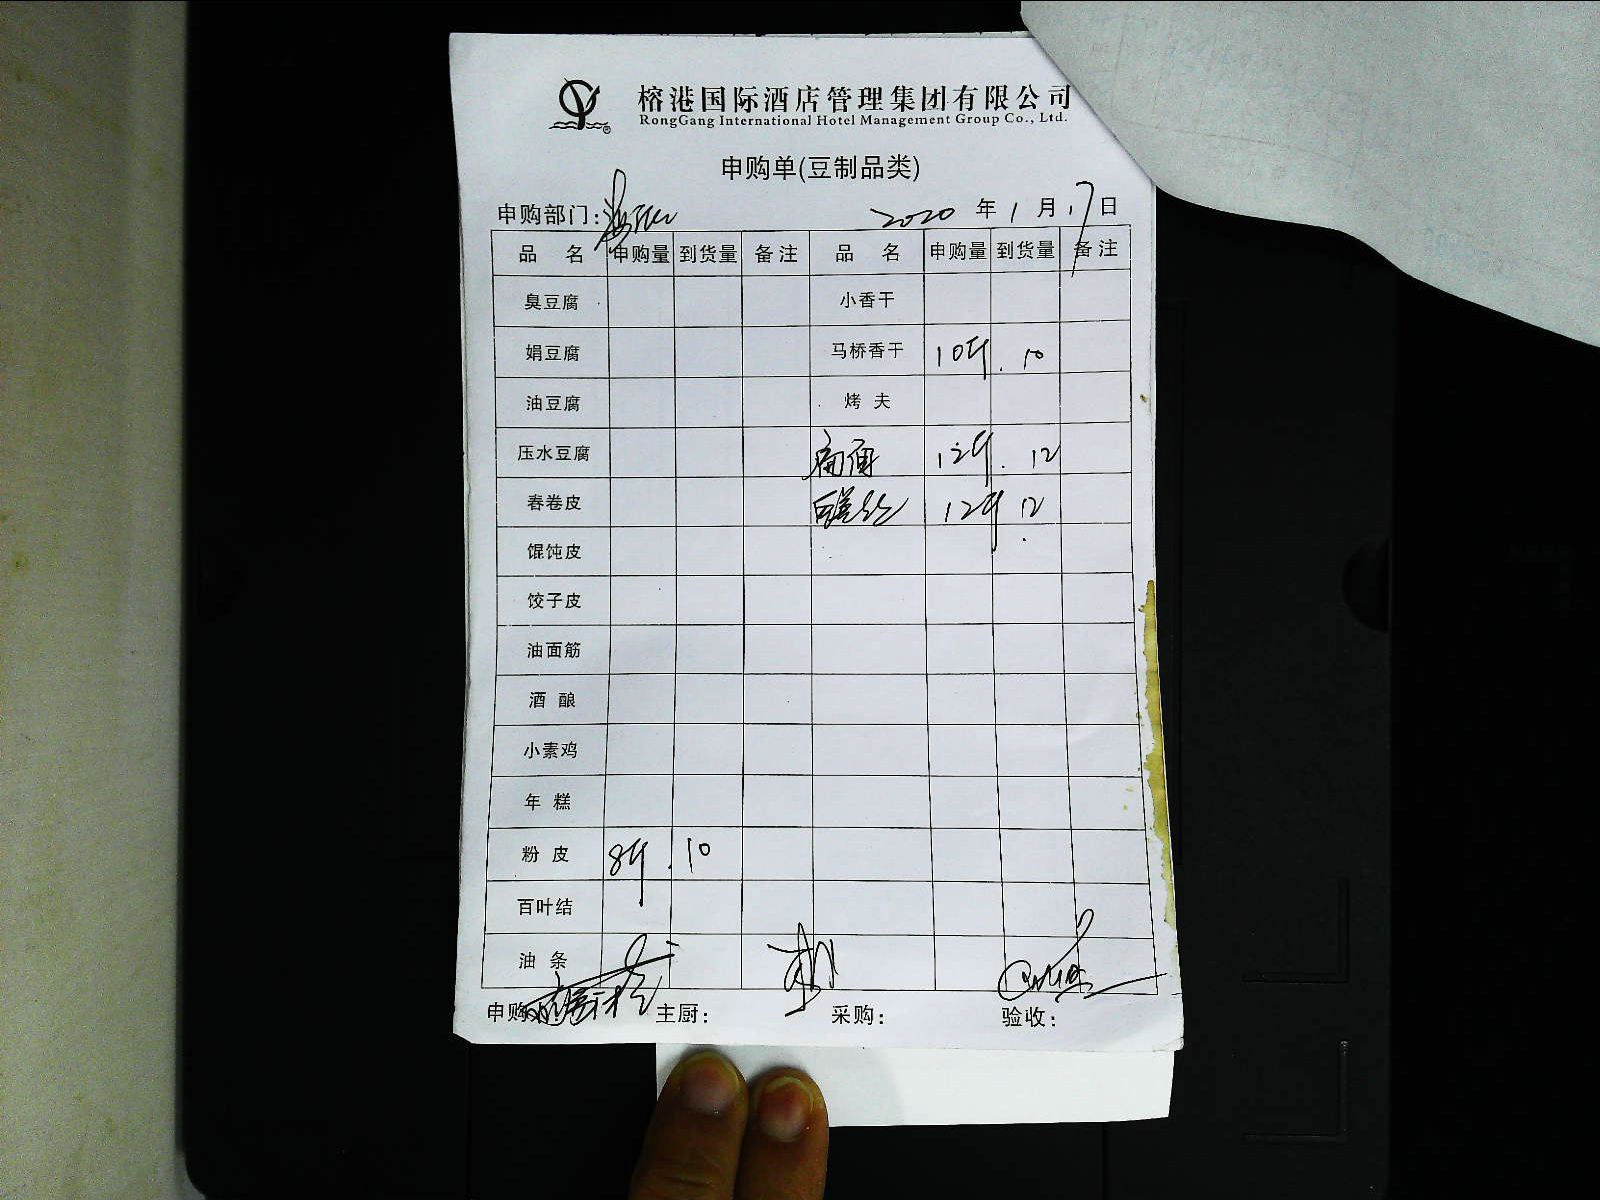 榕港国际酒店管理集团有限公司
RongGang International Hotel Management Group Co., Ltd.
申购单(豆制品类)
申购部门: 2020 年 1 月 17 日
品 名 申购量 到货量 备注 品 名 申购量 到货量 备注
臭豆腐 小香干
娟豆腐 马桥香干 10斤 10
油豆腐 烤夫
压水豆腐 12斤 12
春卷皮 12斤 12
馄饨皮
饺子皮
油面筋
酒酿
小素鸡
年糕
粉皮 8斤 10
百叶结
油条
申购 主厨: 采购: 验收: